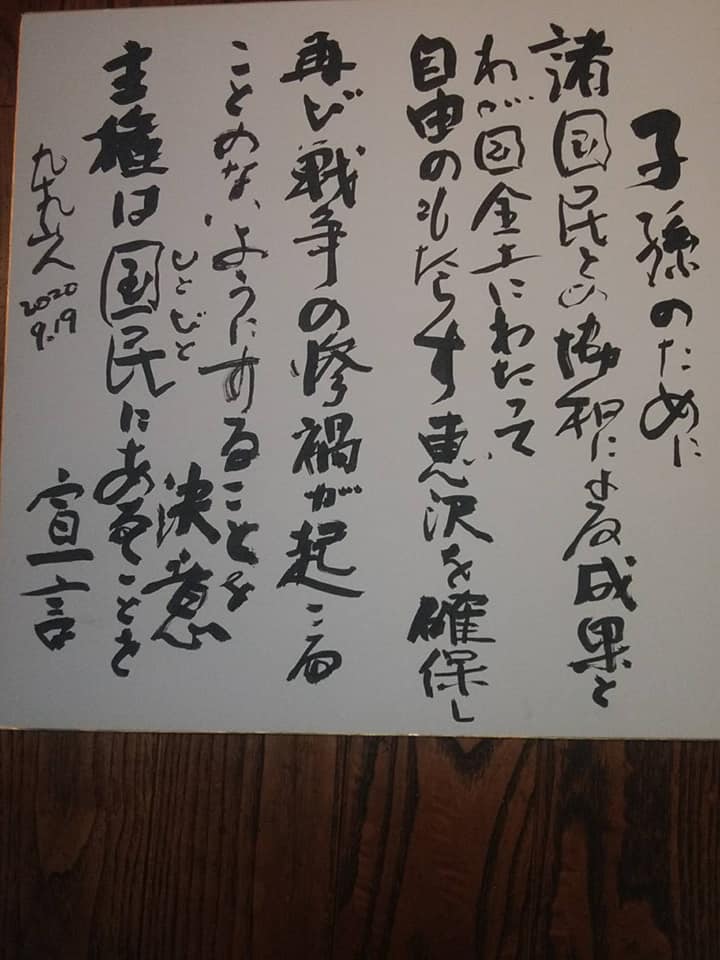 子孫のために
諸国民との協和による成果と
わが国全土にわたって
自由のもたらす恵沢を確保し
再び戦争の惨禍が起こる
ことのないようにすることを
決意
主権は国民にあることを
ひとびと
宣言
2020
9.19